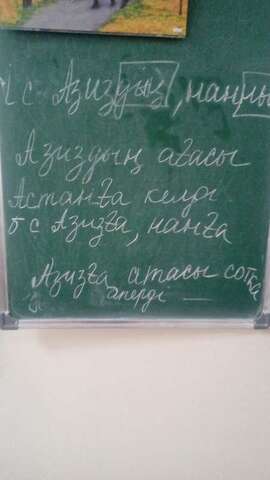 І с Азиздың, нанны
Азиздың ағасы
Астанға келді
б с Азизға, нанға
Азизға атасы сотка
әперді